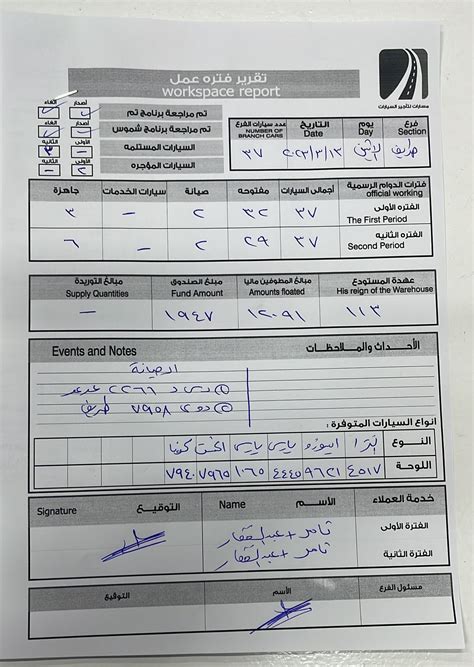 تقرير فتره عمل
workspace report
مسارات لتأجير السيارات
أصدار الغاء
تم مراجعة برنامج تم
تم مراجعة برنامج شموس
الأولى الثانيه
السيارات المستلمه - ٣
السيارات المؤجره ٢ -
فرع Section
يوم Day
التاريخ Date
عدد سيارات الفرع NUMBER OF BRANCH CARS
طريف الاثنين ٢٠٢٣/٣/١٣ ٣٧
فترات الدوام الرسمية official working
أجمالى السيارات مفتوحه صيانة سيارات الخدمات جاهزة
الفتره الأولى The First Period ٣٧ ٣٢ ٢ - ٣
الفتره الثانيه Second Period ٣٧ ٢٩ ٢ - ٦
عهدة المستودع His reign of the Warehouse
مبالغ المطوفين ماليا Amounts floated
مبلغ الصندوق Fund Amount
مبالغ التوريدة Supply Quantities
١١٣ ١٢٠٩١ ١٩٤٧ -
Events and Notes الأحداث والملاحظات
الصيانة
① د س د ٢٢٦٦ عرعر
② د و ى ٧٩٥٨ طريف
انواع السيارات المتوفرة :
النوع النترا ايسوزو يارس يارس اكسنت
اللوحة ٤٥١٧ ٩٦٢١ ٤٤٤٥ ١٠٦٥ ٧٩٦٥ ٧٩٤٠
خدمة العملاء
الأسم Name
التوقيع Signature
الفترة الأولى تامر + عبدالغفار
الفترة الثانية تامر + عبدالغفار
مسئول الفرع الأسم التوقيع